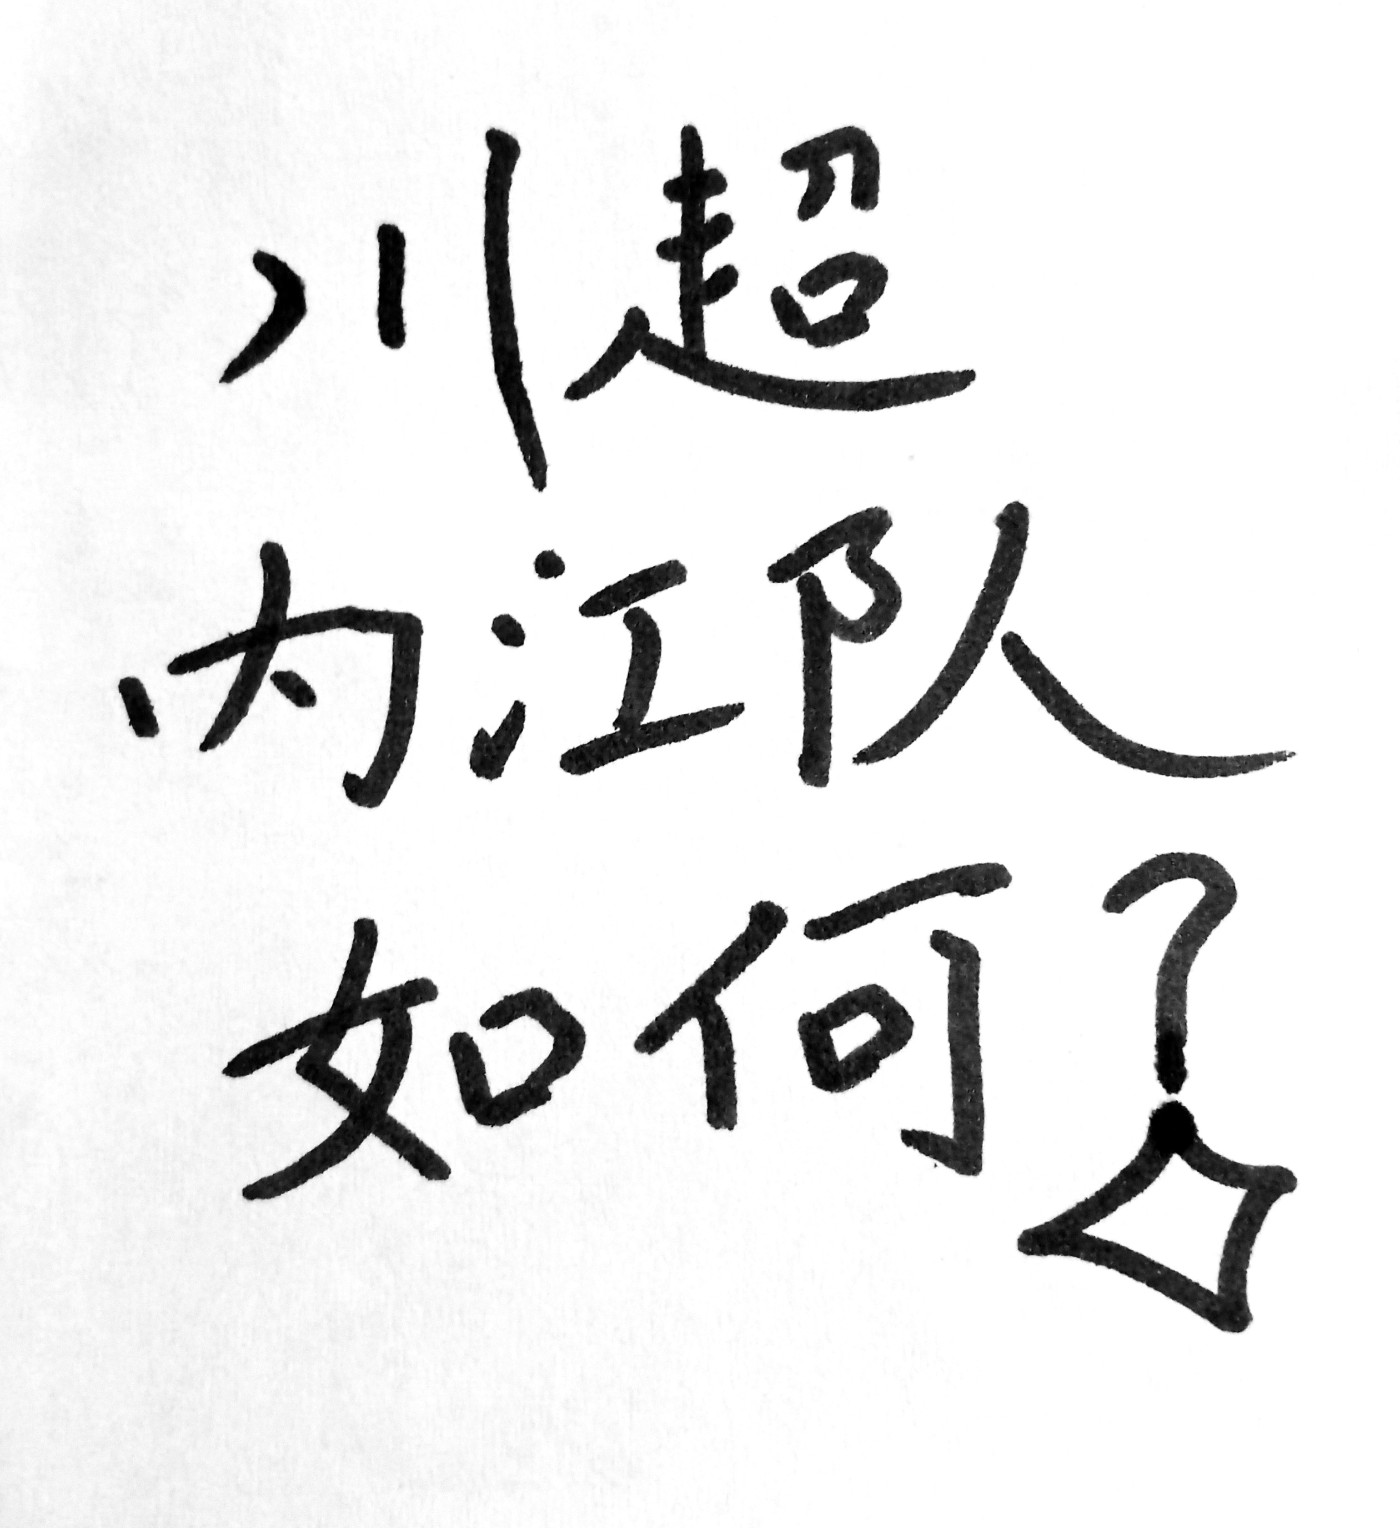 川超
内江队
如何？